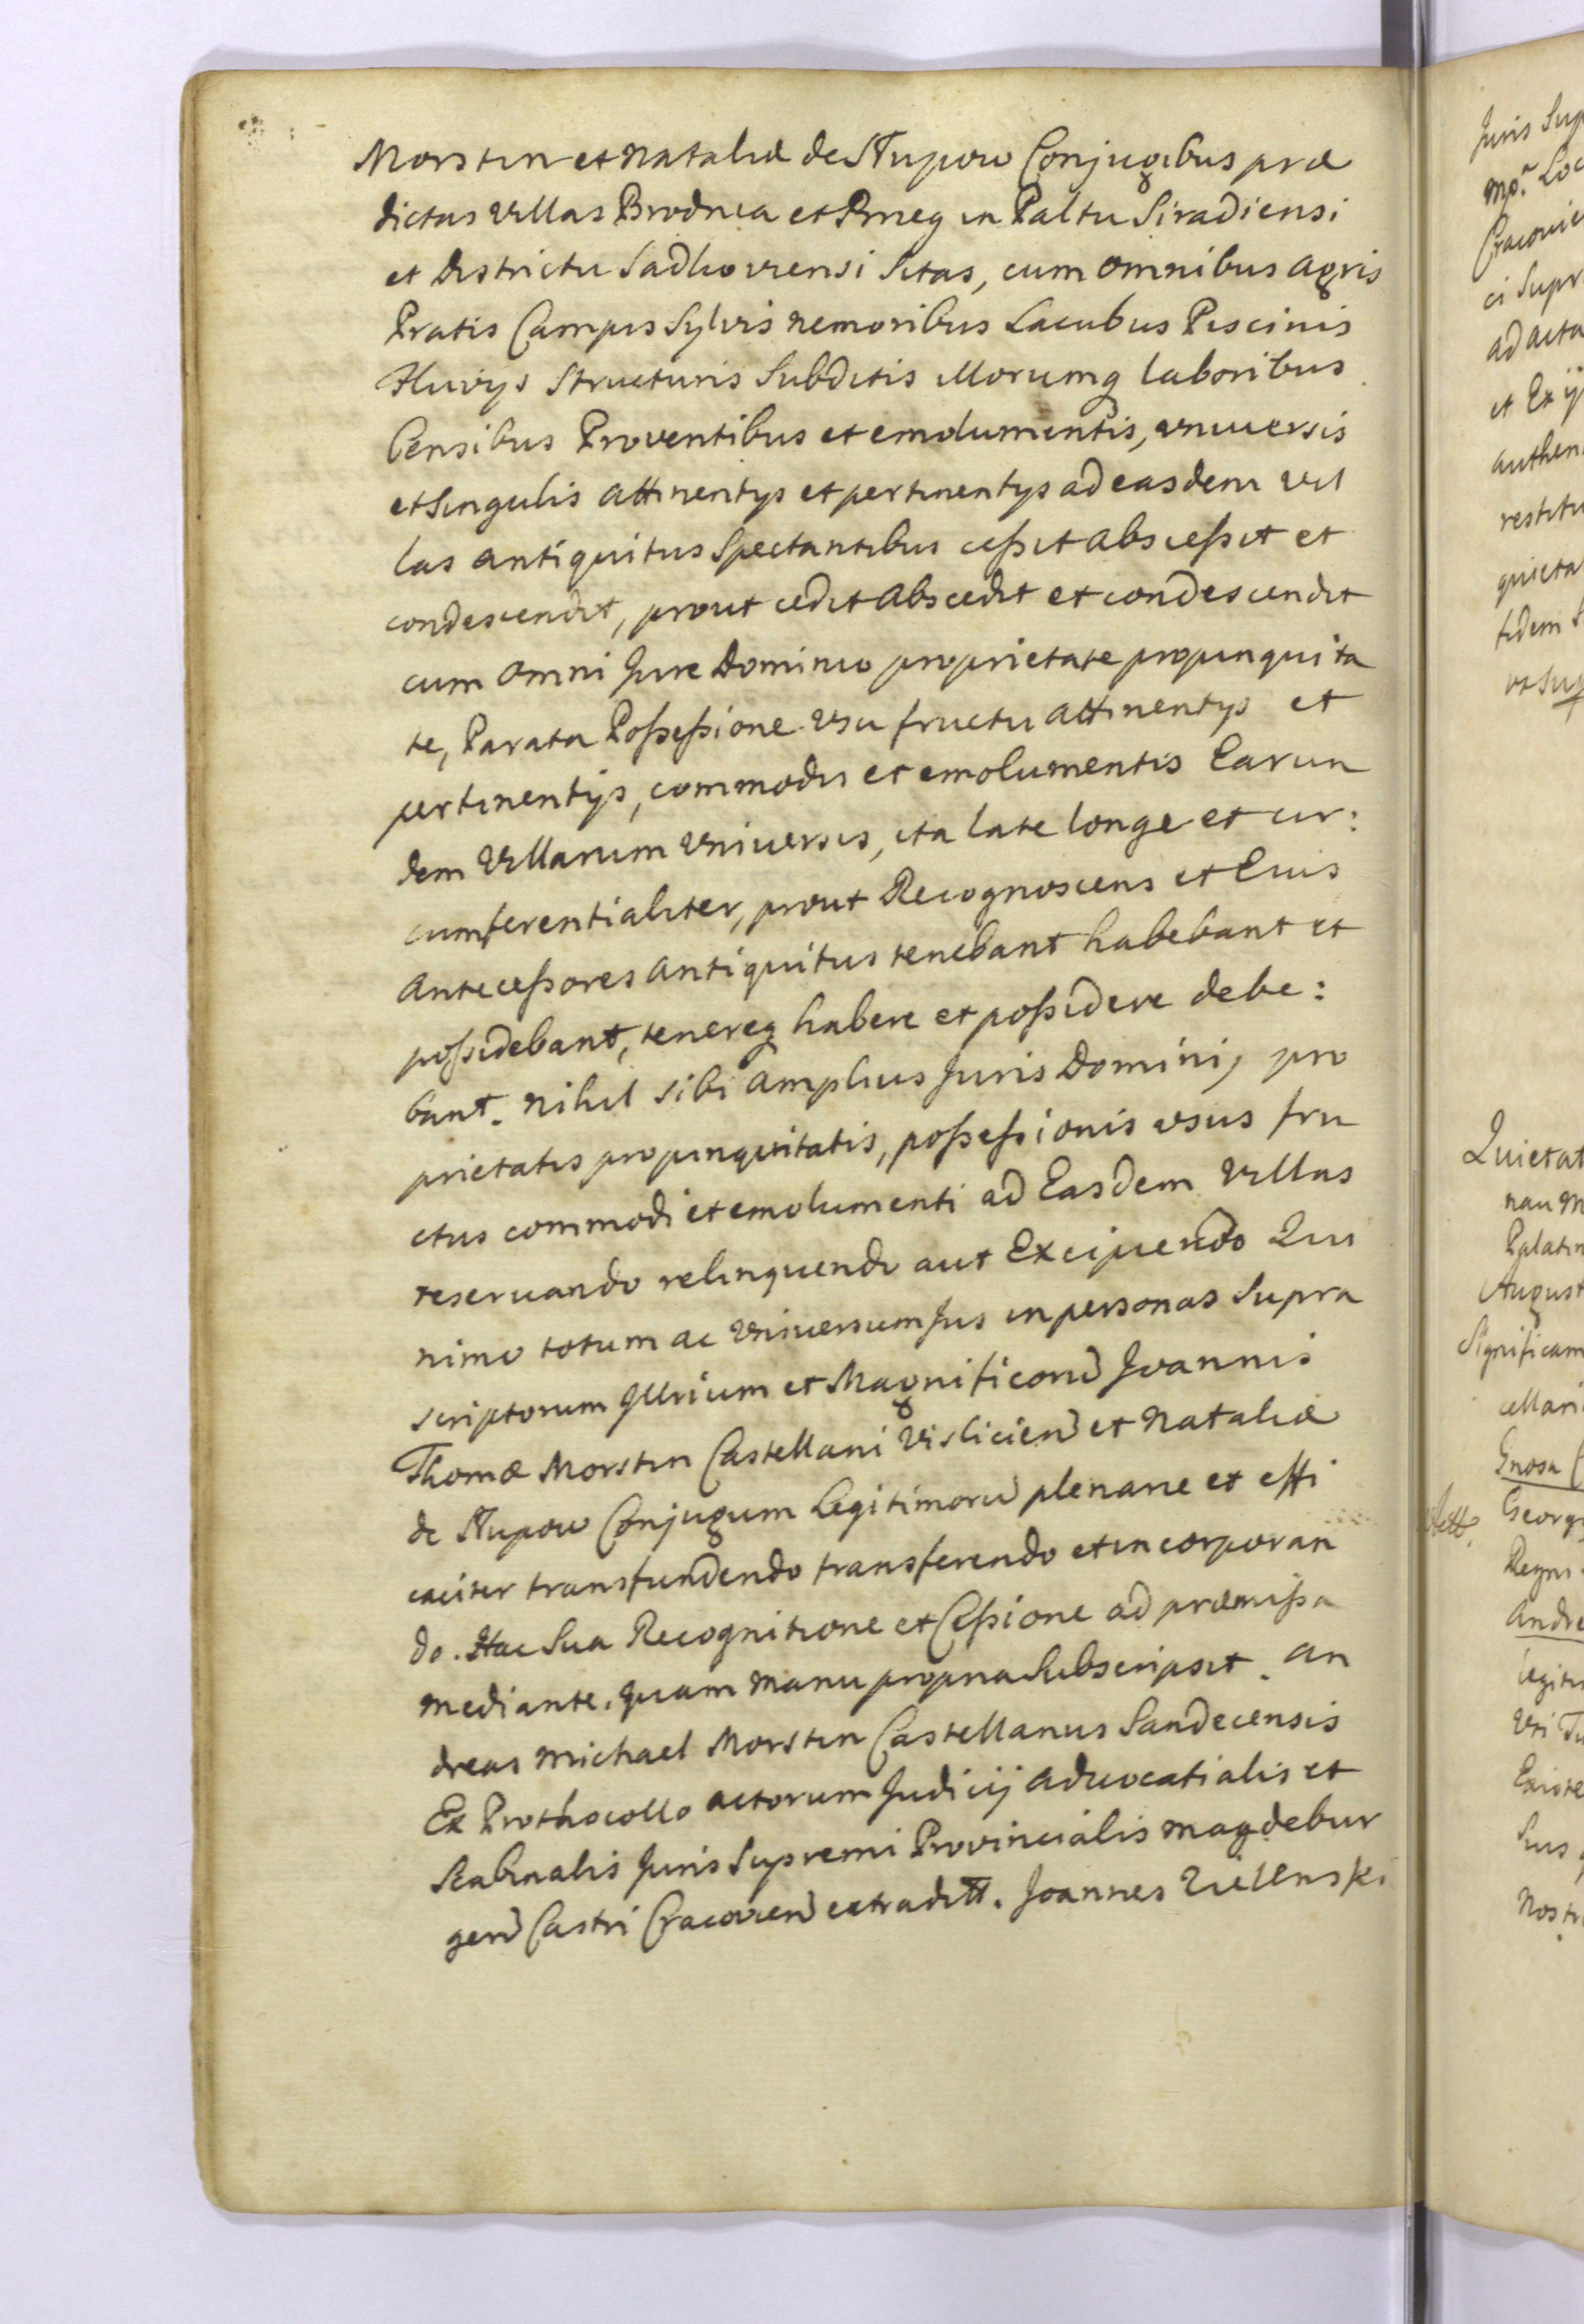 Morstin et Nataliæ de Stupow Conjugibus præ
dictas Villas Brodnia et Brneg in Paltu Siradiensi
et Districtu Sadkoviensi Sitas, cum omnibus agris
Pratis Campis Sylvis nemoribus Lacubus Piscinis
Fluvys Structuris Subditis illorumq laboribus
Censibus Proventibus et emolumentis, vniuersis
et Singulis attinentys et pertinentys ad easdem vil
las antiquitus Spectantibus cessit abscessit et
condescendit, prout cedit abscedit et condescendit
cum omni Jure Dominio proprietate propinquita
te, Parata Possessione vsu fructu attinentys et
pertinentys, commodis et emolumentis Earun
dem Villarum vniuersis, ita late longe et cir:
cumferentialiter, prout Recognoscens et Eius
Antecessores antiquitus tenebant habebant et
possidebant, tenereq habere et possidere debe:
bant. nihil sibi amplius Juris Dominij pro
prietatis propinquitatis, possessionis vsus fru
ctus commodi et emolumenti ad Easdem Villas
reseruando relinquendo aut Excipiendo Qui
nimo totum ac vniuersum Jus in personas Supra
scriptorum Jllrium et Magnificorū Joannis
Thomæ Morstin Castellani Visliciend et Nataliæ
de Stupow Conjugum Legitimorū plenarie et effi
caciter transfundendo transferendo et incorporan
do. Hac Sua Recognitione et Cessione ad præmissa
mediante. quam manu propria Subscripsit. An
dreas Michael Morstin Castellanus Sandecensis
Ex Prothocollo actorum Judicij aduocatialis et
Scabinalis Juris Supremi Provincialis magdebur
gend Castri Cracoviend extraditt. Joannes Zielenski
Juris Sup
mp. Loc
Cracovie
ci Supr
ad acta
et Ex ij
authen
restitu
quieta
fidem S
vt sup
Quietat
nau M
Palatin
August
Significam
cellari
Gnosa C
Georg
Regni
Andre
legiti
Vti Tu
Existe
Suis
nostr